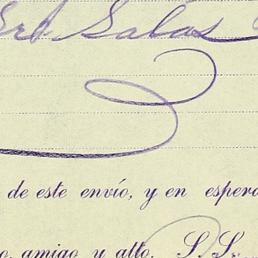 Salas
de este envío, y en espera
o, amigo y atto. S. S.